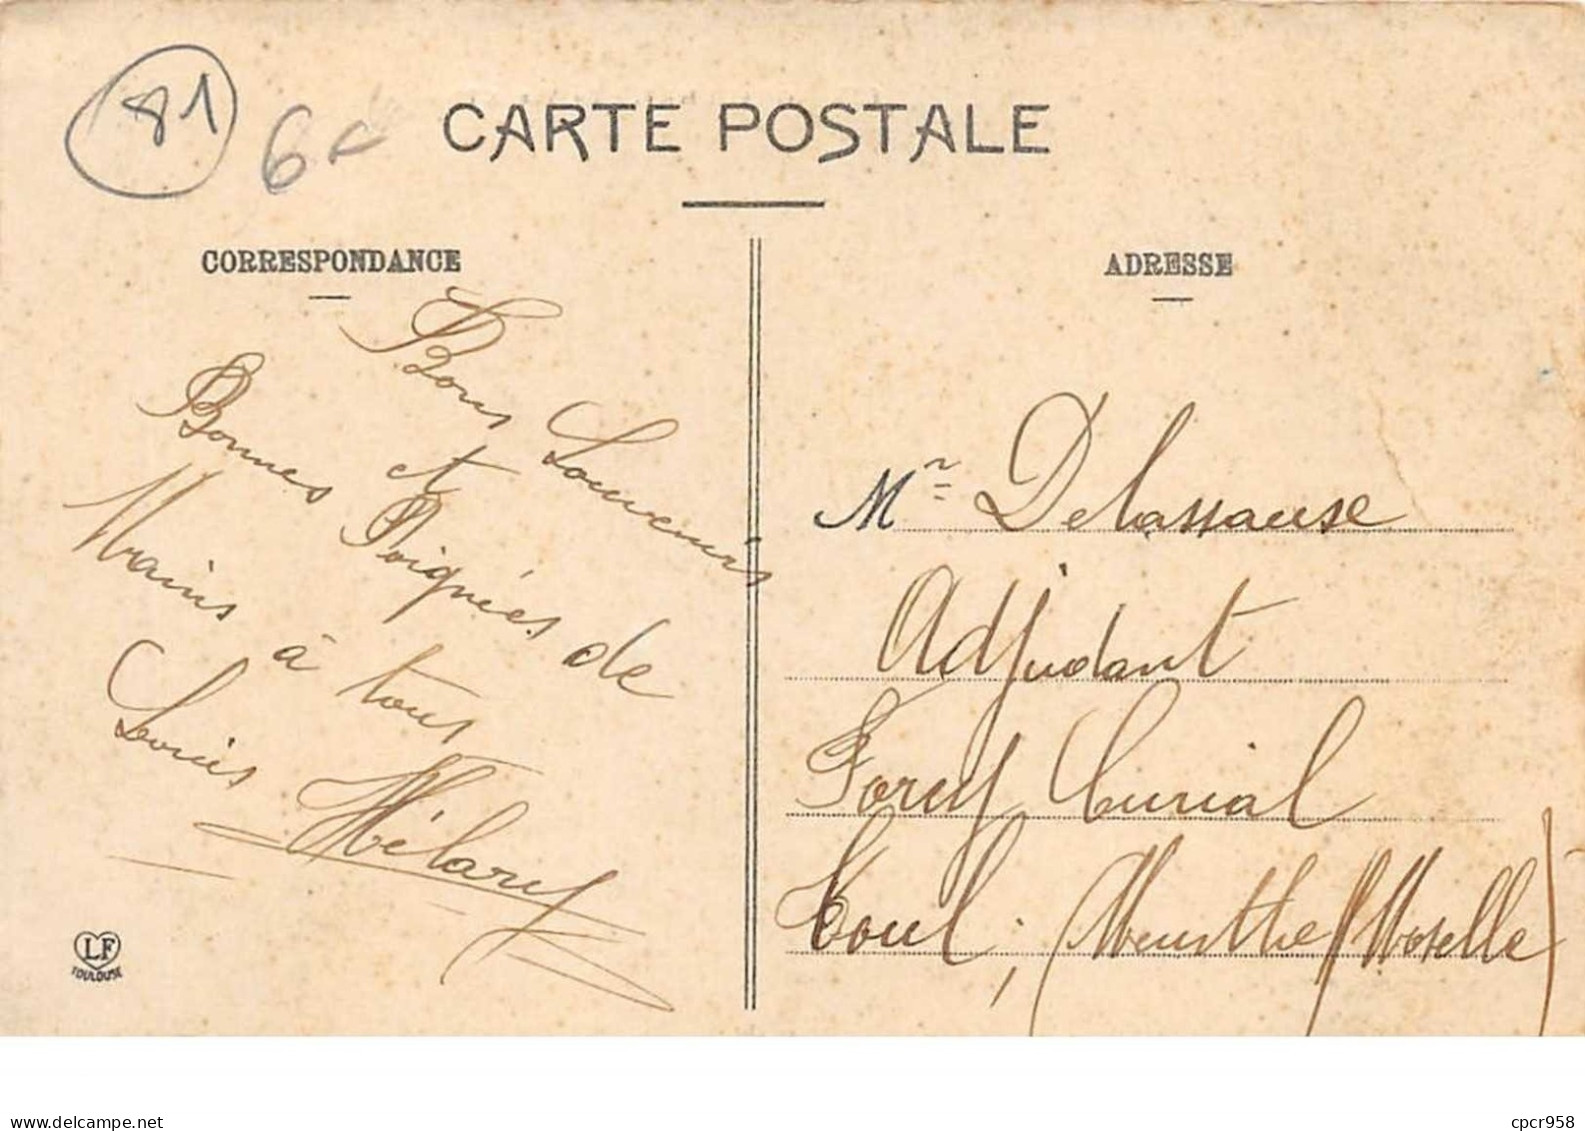 81
6€
CARTE POSTALE
CORRESPONDANCE
Bons Souvenirs
et
Bonnes Poignées de
Mains à tous
Louis Hélary
LF
TOULOUSE
ADRESSE
Mr Delassause
Adjudant
Forey Curial
Toul, (Meurthe/Moselle)
Ref. AL442
cpcr958